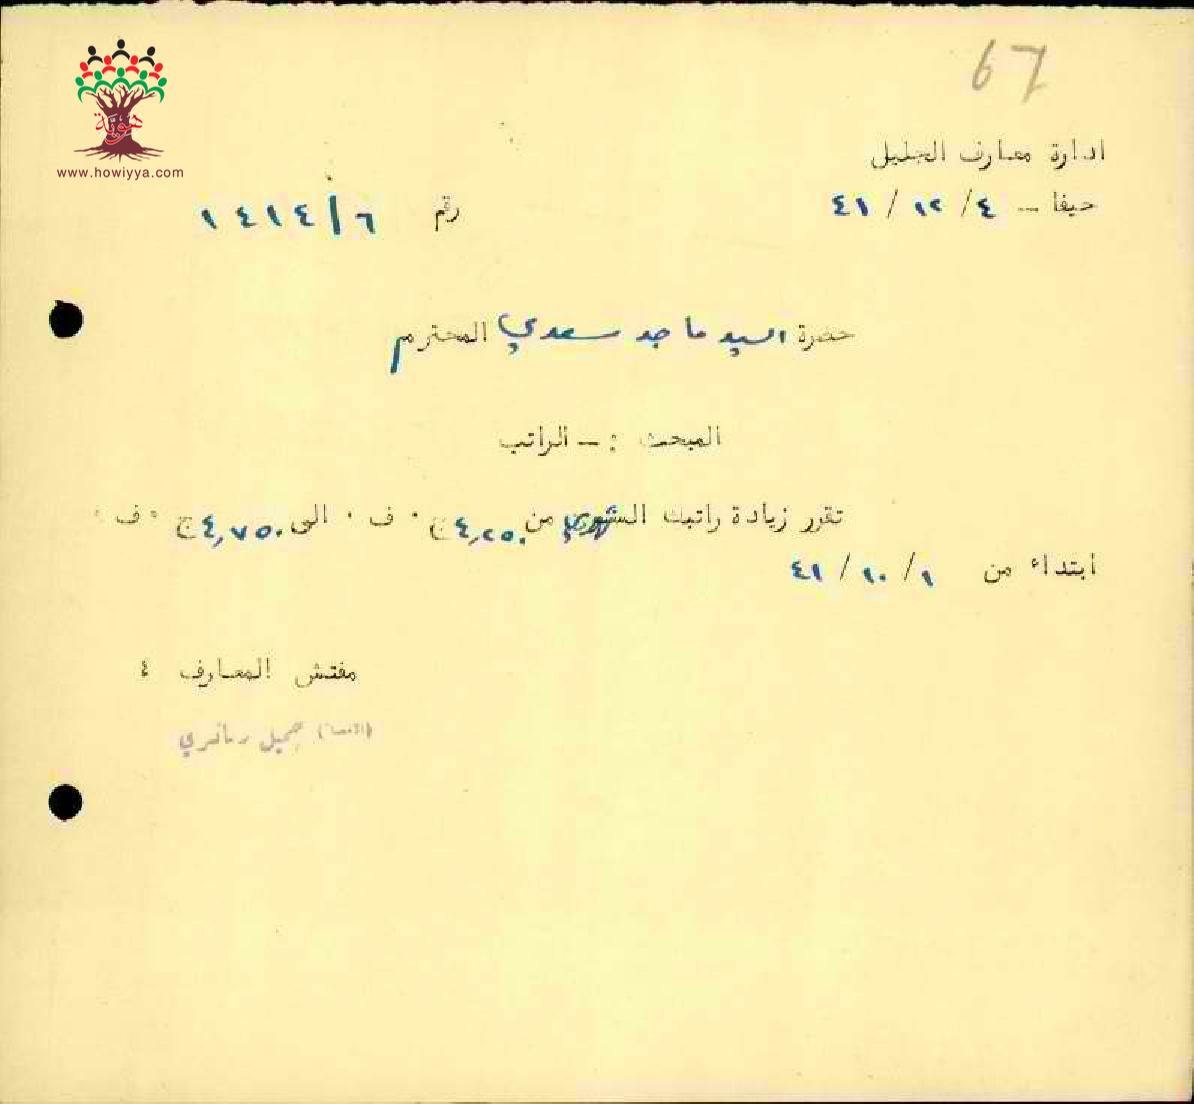 67
هوية
www.howiyya.com
ادارة معارف الجليل
حيفا – ٤/ ١٢ / ٤١
رقم ٦/١٤١٤
حضرة السيد ماجد سعدي المحترم
المبحث : – الراتب
تقرر زيادة راتبك الشهري من ٤,٢٥٠ ج ٠ ف ٠ الى ٤,٧٥٠ ج ٠ ف ٠
ابتداء من ١/ ١٠ / ٤١
مفتش المعارف ٤
جميل